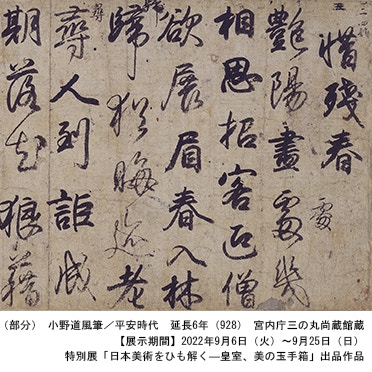 惜殘春
艷陽盡處幾
相思招客迎僧
欲展眉春入林
歸猶晦迹老
尋人到詎成
期落花狼藉
(部分) 小野道風筆/平安時代 延長6年(928) 宮内庁三の丸尚蔵館蔵
【展示期間】2022年9月6日(火)〜9月25日(日)
特別展「日本美術をひも解く―皇室、美の玉手箱」出品作品